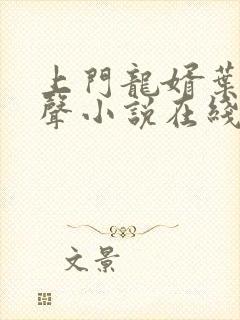 上門龍婿葉
聲小說在綫
文景